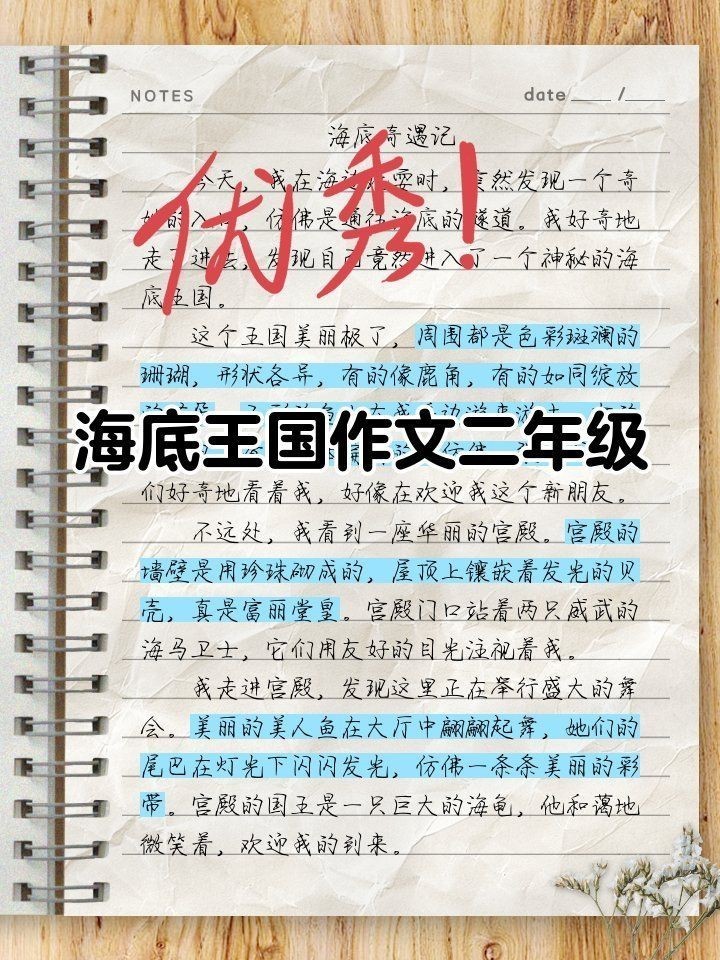 NOTES
date /
海底奇遇记
优秀!
今天，我在海边玩耍时，突然发现一个奇
妙的入口，仿佛是通往海底的隧道。我好奇地
走了进去，发现自己竟然进入了一个神秘的海
底王国。
这个王国美丽极了，周围都是色彩斑斓的
珊瑚，形状各异，有的像鹿角，有的如同绽放
海底王国作文二年级
们好奇地看着我，好像在欢迎我这个新朋友。
不远处，我看到一座华丽的宫殿。宫殿的
墙壁是用珍珠砌成的，屋顶上镶嵌着发光的贝
壳，真是富丽堂皇。宫殿门口站着两只威武的
海马卫士，它们用友好的目光注视着我。
我走进宫殿，发现这里正在举行盛大的舞
会。美丽的美人鱼在大厅中翩翩起舞，她们的
尾巴在灯光下闪闪发光，仿佛一条条美丽的彩
带。宫殿的国王是一只巨大的海龟，他和蔼地
微笑着，欢迎我的到来。